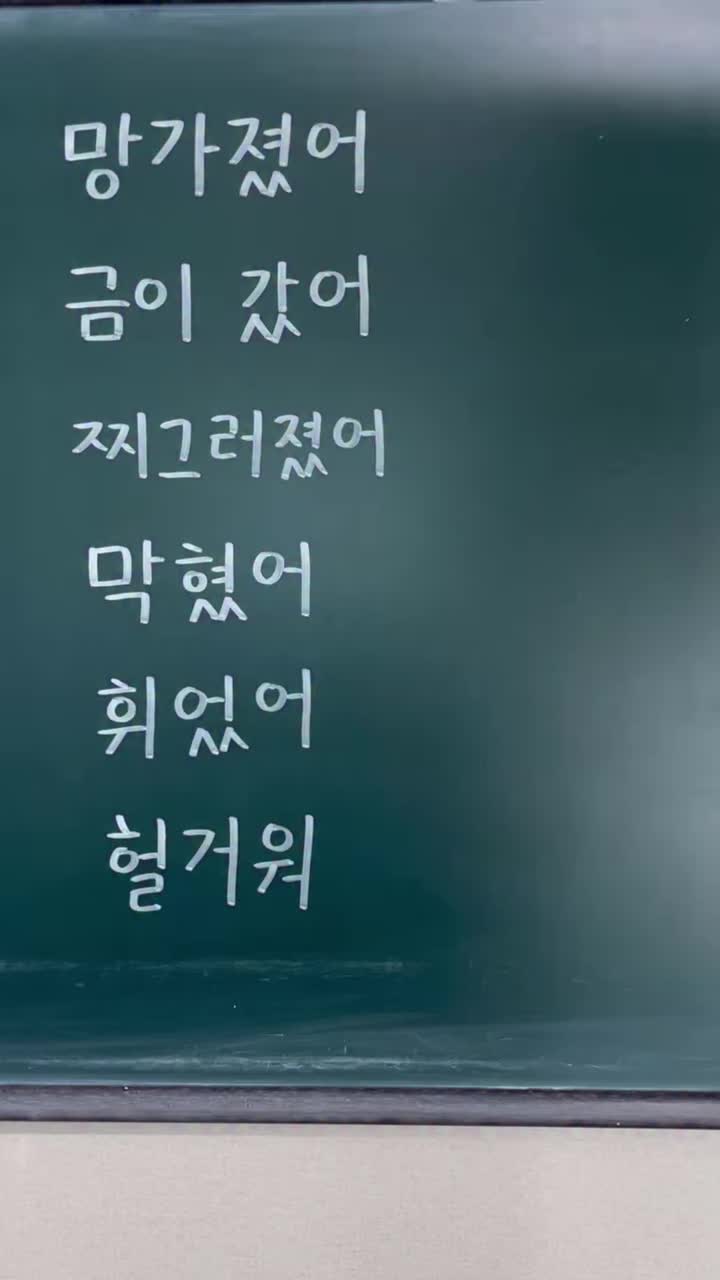 망가졌어
금이 갔어
찌그러졌어
막혔어
휘었어
헐거워